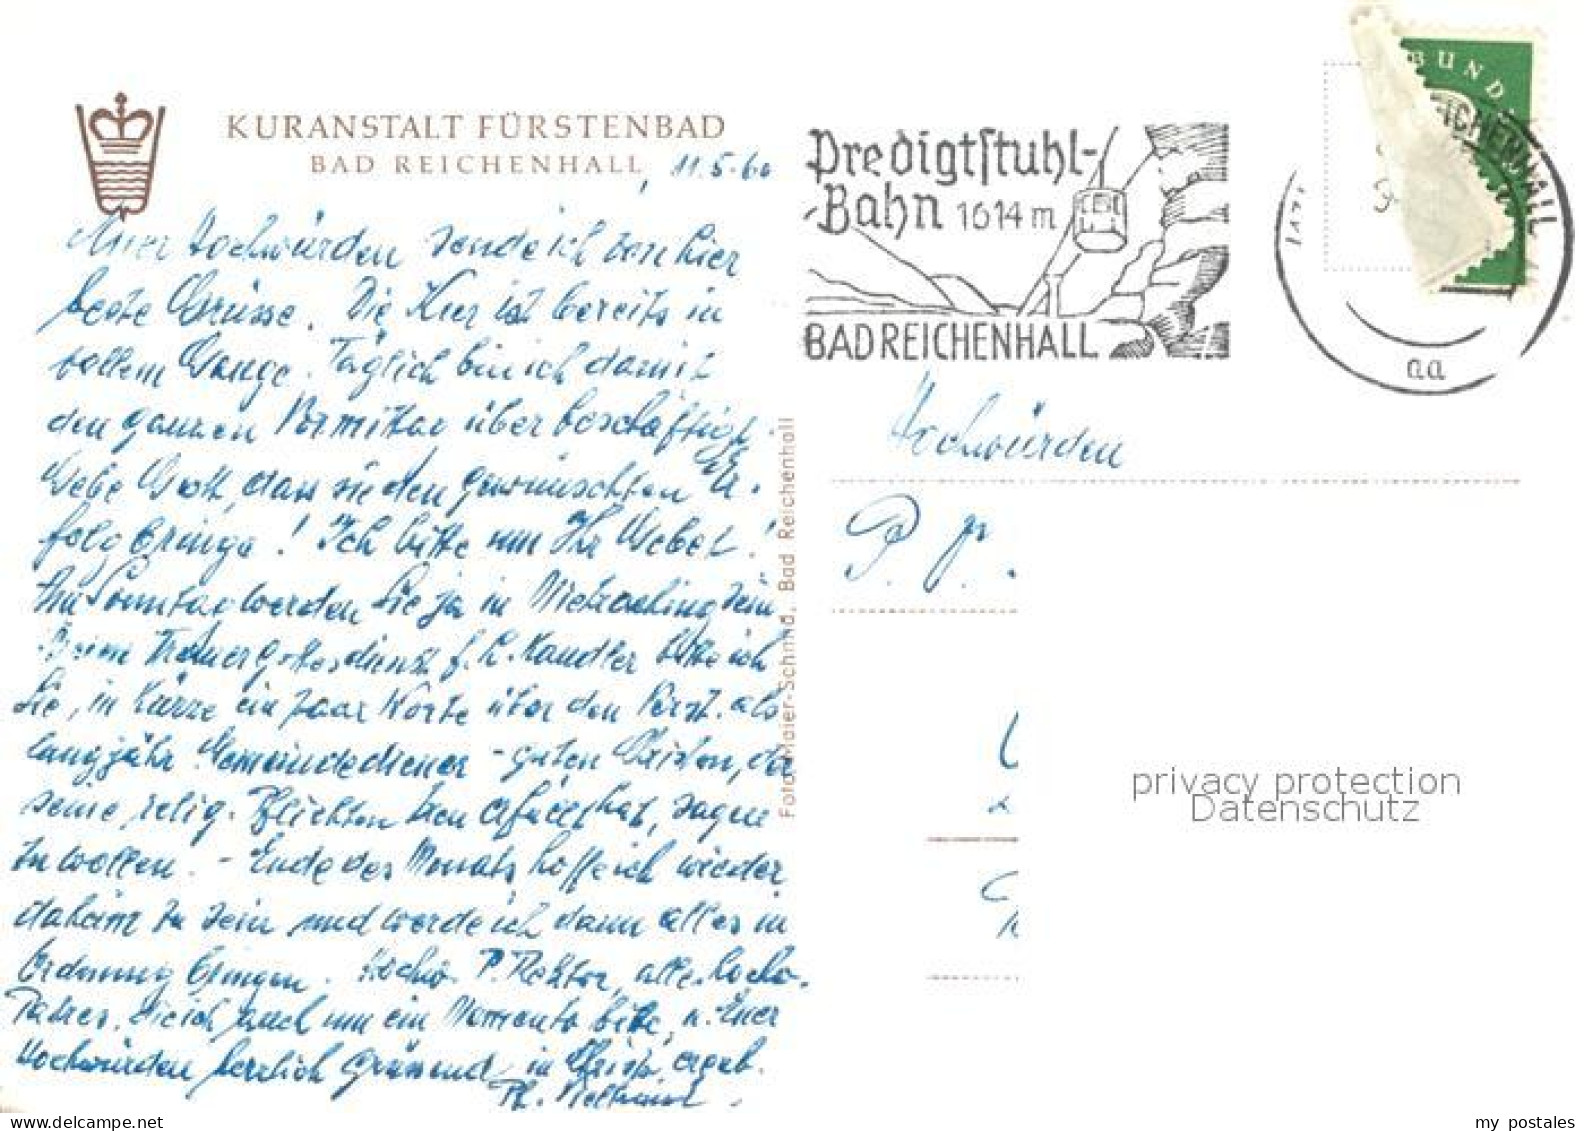 KURANSTALT FÜRSTENBAD
BAD REICHENHALL
11.5.60
Euer Hochwürden sende ich von hier
beste Grüsse. Die Kur ist bereits in
vollem Gange. Täglich bin ich damit
den ganzen Vormittag über beschäftigt.
Gebe Gott, dass sie den gewünschten Er-
folg bringe! Ich bitte um Ihr Gebet!
Am Sonntag werden Sie ja in Mietraching sein
Beim Trauergottesdienst f. H. Kandler bitte ich
Sie, in Kürze ein paar Worte über den Verst. als
langjähr. Gemeindediener - guten Christen, der
seine relig. Pflichten treu erfüllt hat, sagen
zu wollen. - Ende des Monats hoffe ich wieder
daheim zu sein und werde ich dann alles in
Ordnung bringen. Hochw. P. Rektor, alle hochw.
Patres, die ich auch um ein Memento bitte, u. Euer
Hochwürden herzlich grüssend in Christo ergeb.
Foto Maier-Schmid, Bad Reichenhall
Predigtstuhl-
Bahn 1614 m
BAD REICHENHALL
BUND
REICHENHALL
aa
Hochwürden
P. P.
privacy protection
Datenschutz
my postales